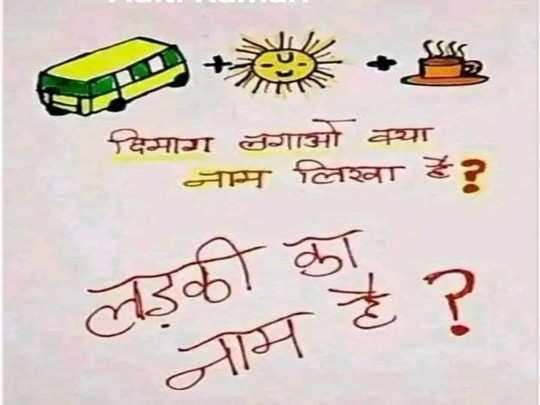 + +
दिमाग लगाओ क्या
नाम लिखा है?
लड़की का
नाम है ?